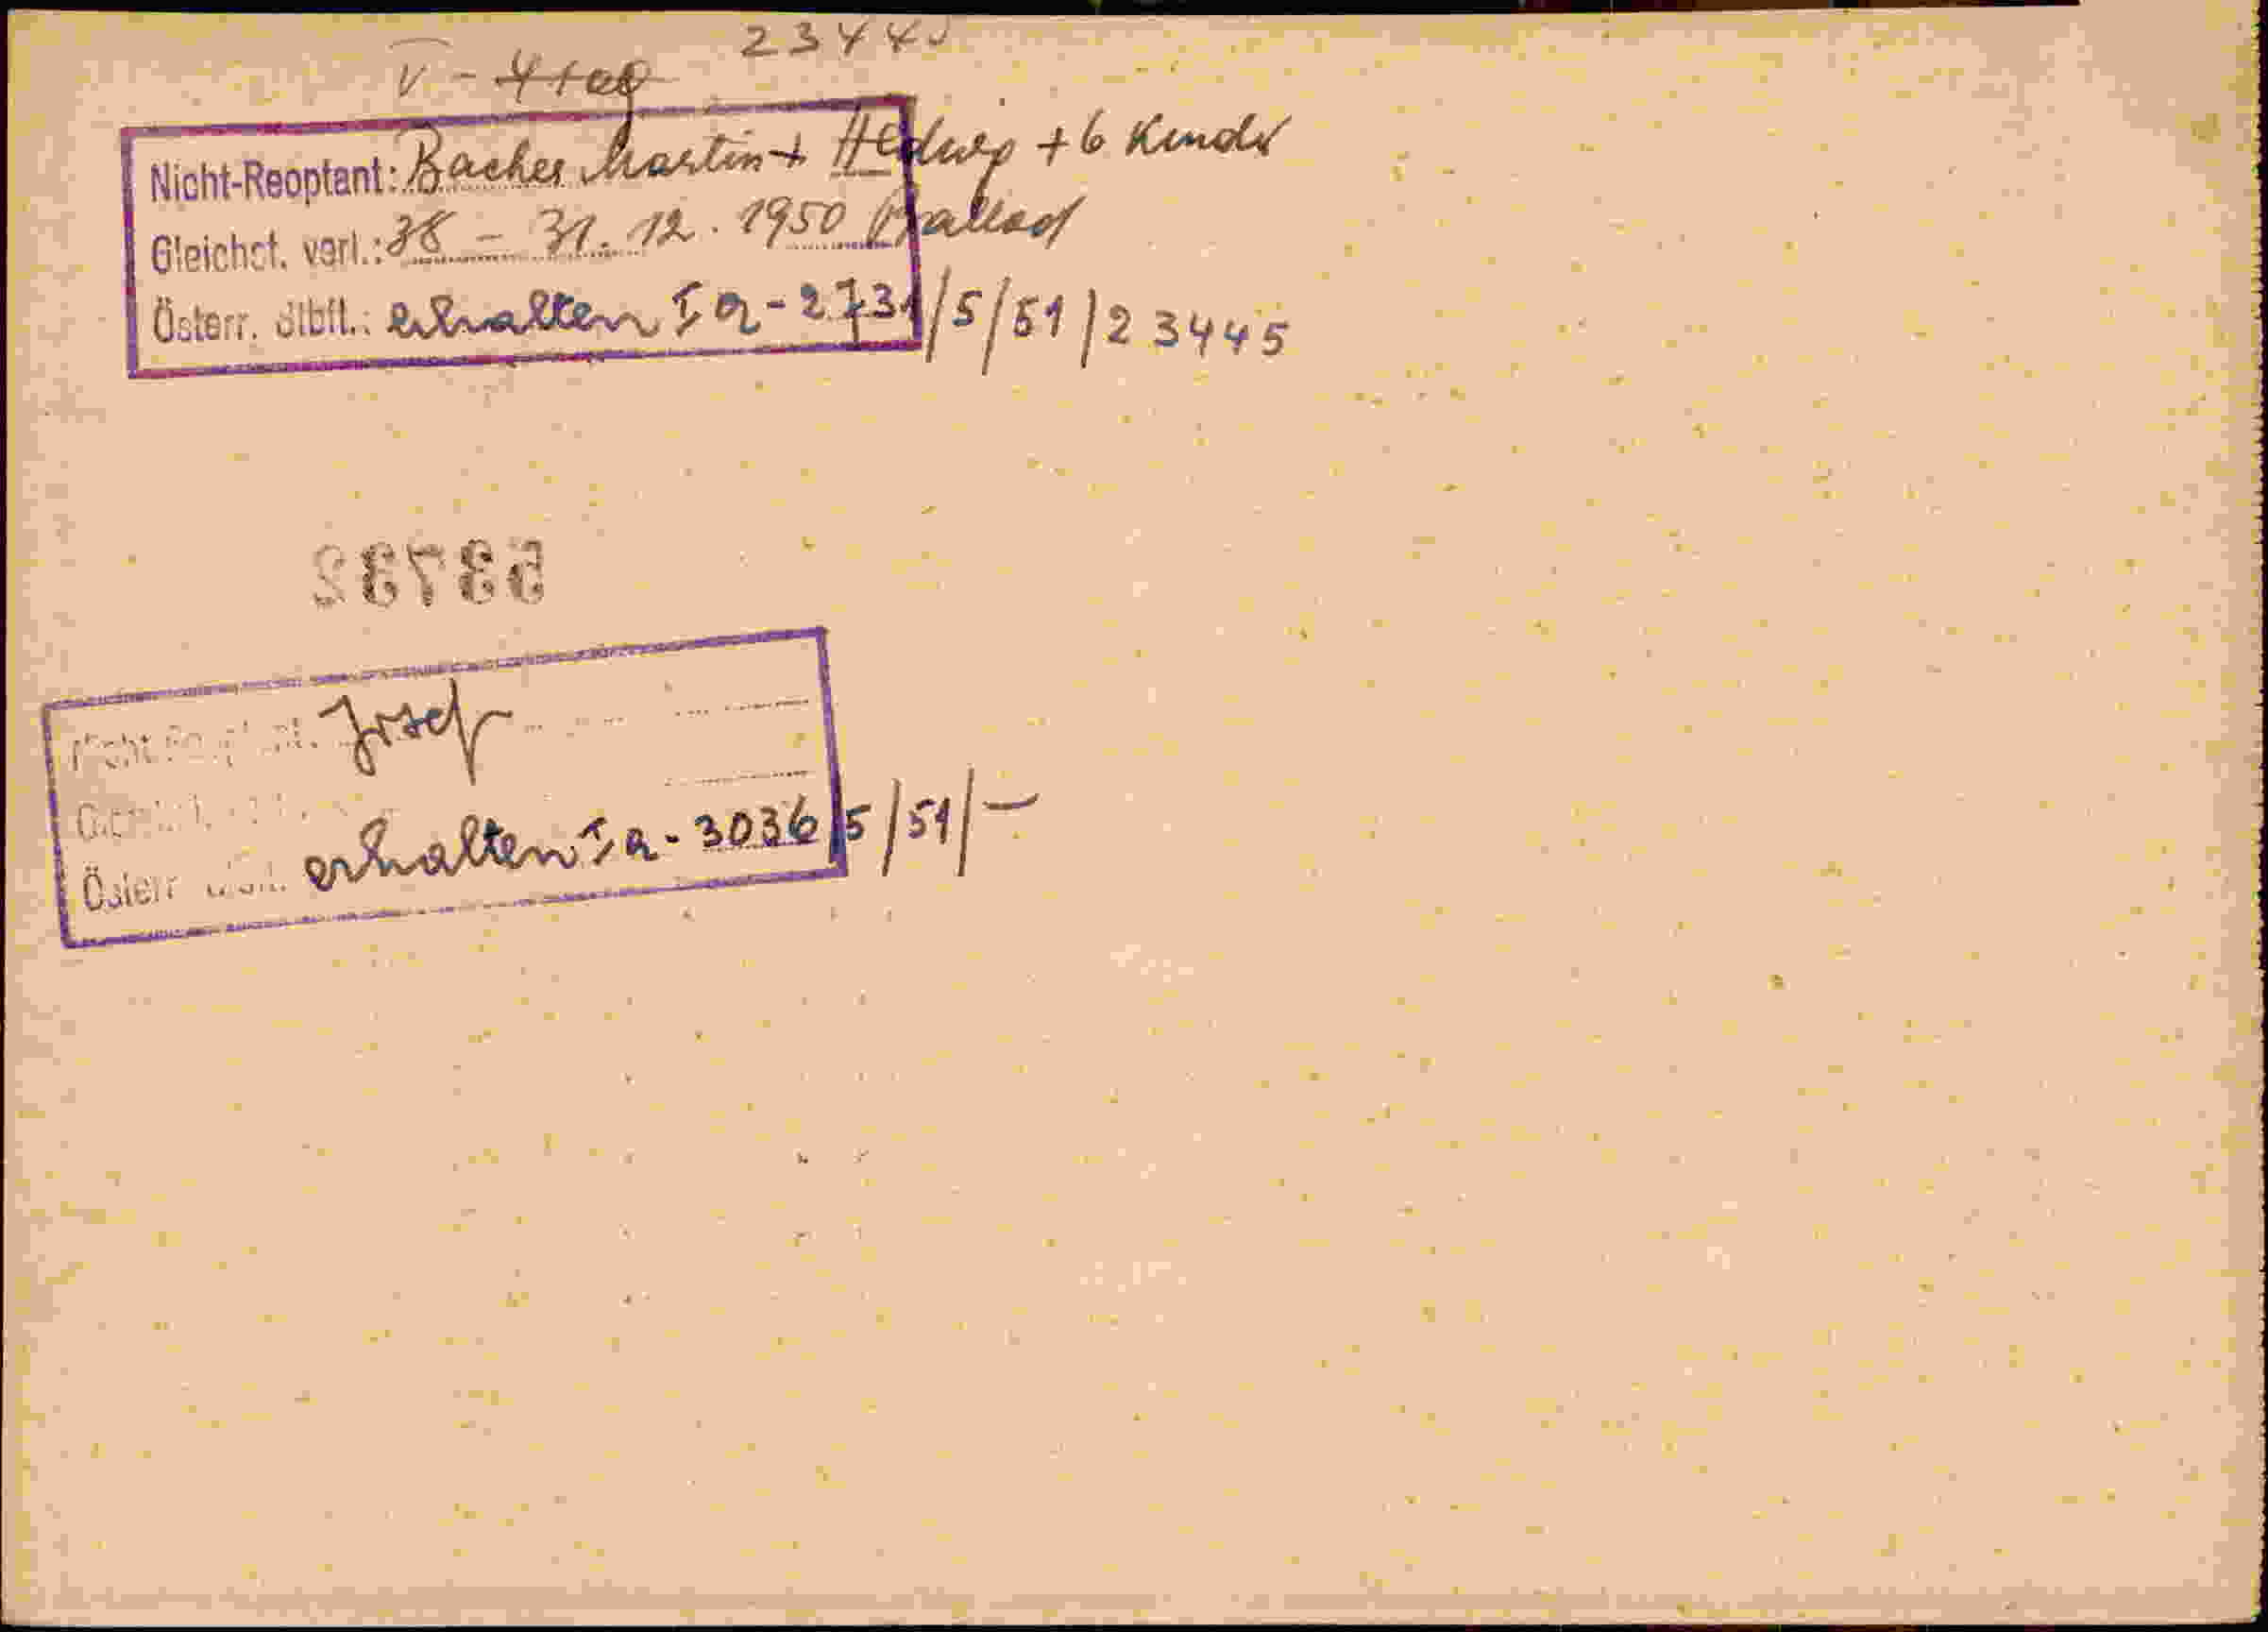 23445
V - 4
Nicht-Reoptant: Bacher Martin + Hedwig + 6 Kinder
Gleichst. verl.: 38 - 31. 12. 1950
Österr. Stbft.: erhalten Ia-2731/5/51/23445
Josef
Österr. erhalten Ia-3036/5/51/-